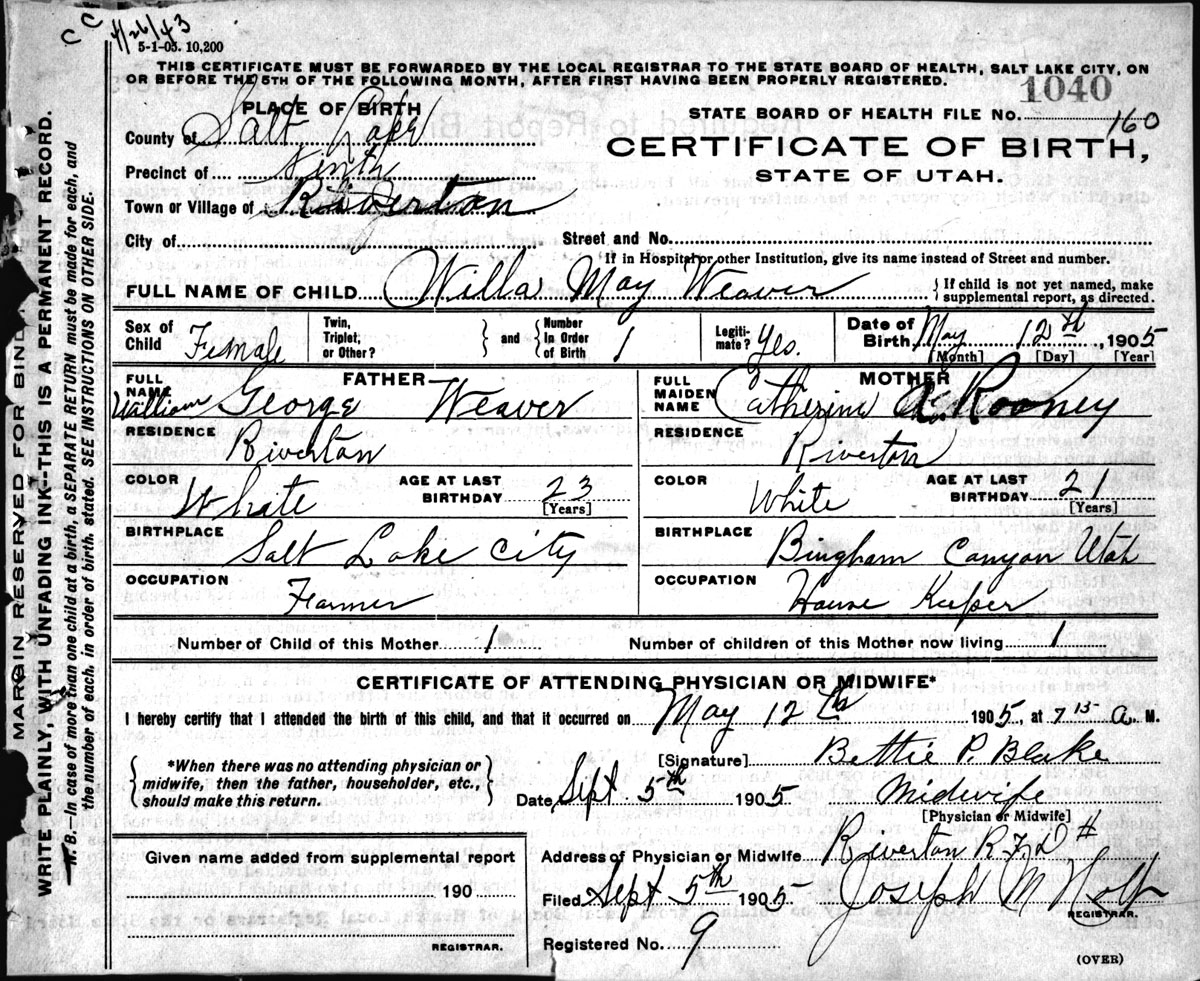 C C 4/26/43
5-1-05. 10,200
THIS CERTIFICATE MUST BE FORWARDED BY THE LOCAL REGISTRAR TO THE STATE BOARD OF HEALTH, SALT LAKE CITY, ON
OR BEFORE THE 5TH OF THE FOLLOWING MONTH, AFTER FIRST HAVING BEEN PROPERLY REGISTERED.
1040
PLACE OF BIRTH
STATE BOARD OF HEALTH FILE No. 160
County of Salt Lake
CERTIFICATE OF BIRTH,
STATE OF UTAH.
Precinct of
Town or Village of Riverton
City of Street and No.
If in Hospital or other Institution, give its name instead of Street and number.
FULL NAME OF CHILD Willa May Weaver { If child is not yet named, make
supplemental report, as directed.
Sex of Child Female
Twin, Triplet, or Other? } and { Number In Order of Birth 1
Legiti-mate? Yes.
Date of Birth May 12th, 1905
[Month] [Day] [Year]
FATHER
FULL NAME William George Weaver
RESIDENCE Riverton
COLOR White AGE AT LAST BIRTHDAY 23
[Years]
BIRTHPLACE Salt Lake City
OCCUPATION Farmer
MOTHER
FULL MAIDEN NAME Catherine Rooney
RESIDENCE Riverton
COLOR White AGE AT LAST BIRTHDAY 21
[Years]
BIRTHPLACE Bingham Canyon Utah
OCCUPATION House Keeper
Number of Child of this Mother 1 Number of children of this Mother now living 1
CERTIFICATE OF ATTENDING PHYSICIAN OR MIDWIFE*
I hereby certify that I attended the birth of this child, and that it occurred on May 12th 1905, at 7 15 a. M.
{ *When there was no attending physician or
midwife, then the father, householder, etc.,
should make this return. }
[Signature] Bettie P. Blake
Date Sept 5th 1905 Midwife
[Physician or Midwife]
Given name added from supplemental report
190
REGISTRAR.
Address of Physician or Midwife Riverton R F D #
Filed Sept 5th 1905 Joseph M
REGISTRAR.
Registered No. 9
(OVER)
MARGIN RESERVED FOR BIND
WRITE PLAINLY, WITH UNFADING INK--THIS IS A PERMANENT RECORD.
N. B.—In case of more than one child at a birth, a SEPARATE RETURN must be made for each, and
the number of each, in order of birth, stated. SEE INSTRUCTIONS ON OTHER SIDE.